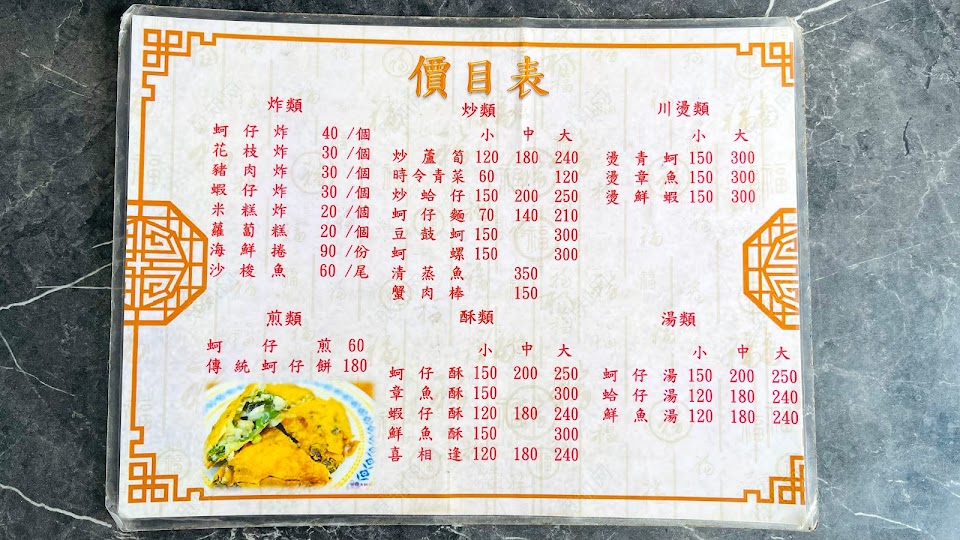 價目表
炸類
蚵仔炸 40/個
花枝炸 30/個
豬肉炸 30/個
蝦仔炸 30/個
米糕炸 20/個
蘿蔔糕 20/個
海鮮捲 90/份
沙梭魚 60/尾
炒類
小 中 大
炒蘆筍 120 180 240
時令青菜 60 120
炒蛤仔 150 200 250
蚵仔麵 70 140 210
豆鼓蚵 150 300
蚵螺 150 300
清蒸魚 350
蟹肉棒 150
川燙類
小 大
燙青蚵 150 300
燙章魚 150 300
燙鮮蝦 150 300
煎類
蚵仔煎 60
傳統蚵仔餅 180
酥類
小 中 大
蚵仔酥 150 200 250
章魚酥 150 300
蝦仔酥 120 180 240
鮮魚酥 150 300
喜相逢 120 180 240
湯類
小 中 大
蚵仔湯 150 200 250
蛤仔湯 120 180 240
鮮魚湯 120 180 240